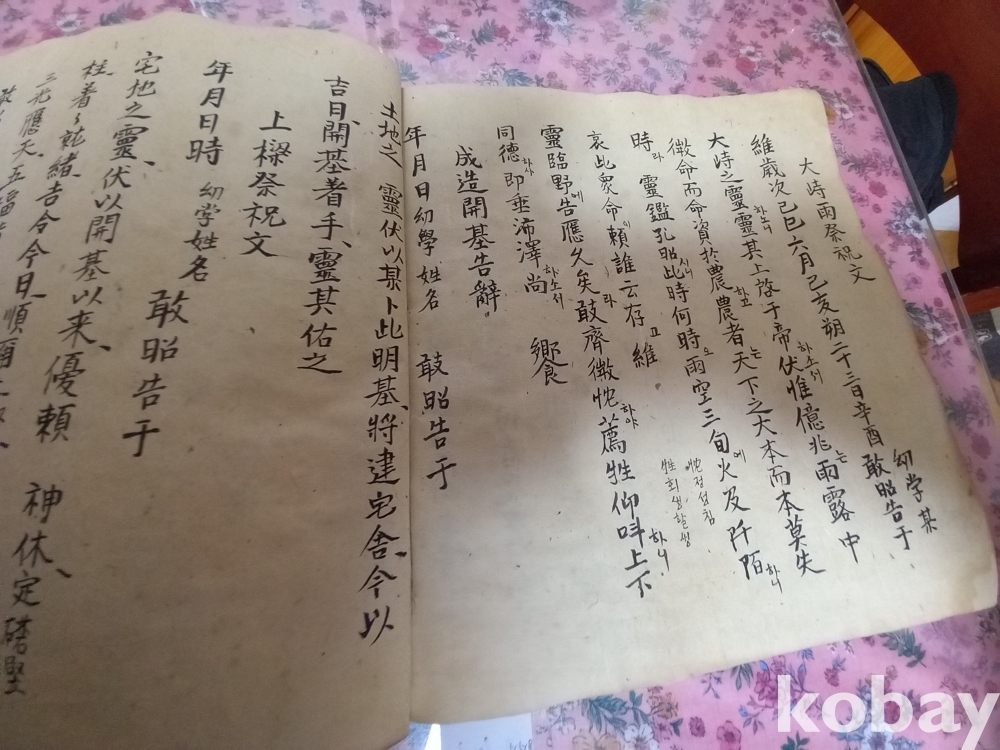 大峙雨祭祝文
維歲次己巳六月己亥朔二十三日辛酉 幼学某 敢昭告于
大峙之靈靈其上啓于帝伏惟億兆雨露中
하소니 하소서 는
微命而命資於農農者天下之大本而本莫失
하고 는
時 靈鑑孔昭此時何時雨空三旬火及阡陌
라 시니 오 에 하니
哀此衆命賴誰云存 維
이 고
靈臨野告應久矣敢齊微忱薦牲仰呌上下
에 라 하야 하니
忱정성침
牲희생할생
同德即垂沛澤尚 饗
하사 하소서
成造開基告辭
年月日幼學姓名 敢昭告于
土地之 靈伏以某卜此明基、將建宅舍、今以
吉日、開基着手、靈其佑之
上樑祭祝文
年月日時 幼学姓名 敢昭告于
宅地之靈、伏以開基以来、優頼 神休、定礎堅
柱、着々就緒、吉令今日、順
三光應天、五
kobay